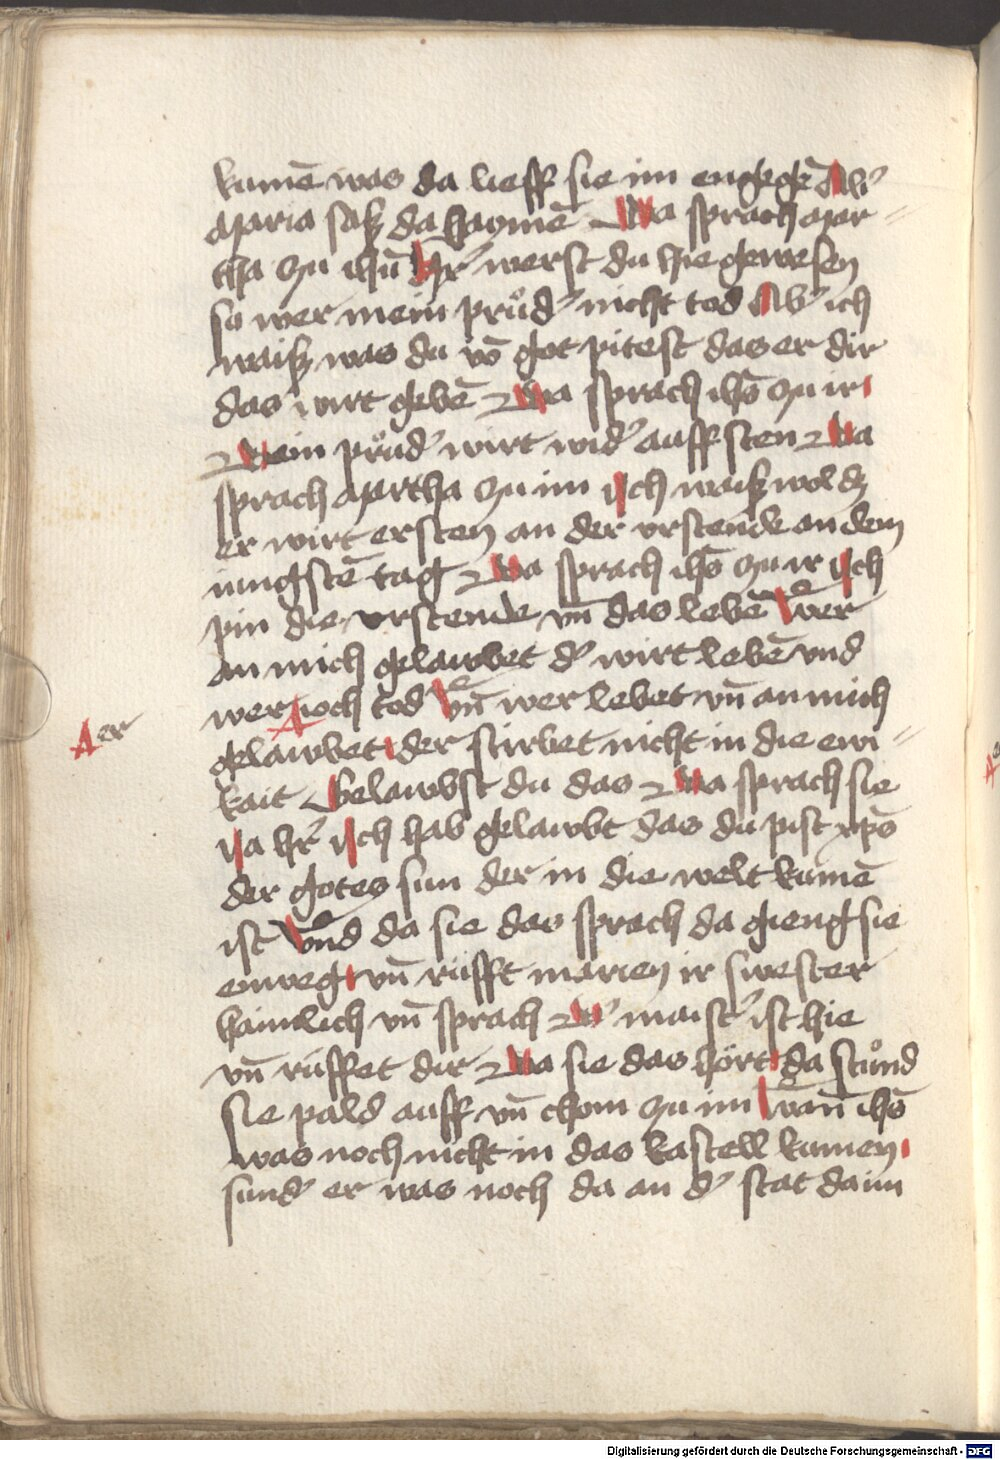 kumē was da lieff sie im engegē Ab'
Maria saß da haymē Da sprach Mar=
tha zu ihū h'r werst du hie gewesen
so wer mein průd' nicht tod Ab' ich
waiß was du vō got pitest das er dir
das wirt gebē Da sprach ihs̄ zu ir
Dein průd' wirt wid' auffsten Da
sprach Martha zu im Ich waiß wol dz
er wirt ersten an der vrstende an dem
iungstē tag Da sprach ihs̄ zu ir Ich
pin die vrstende vn̄ das lebē Wer
an mich gelawbet d' wirt lebē vnd
wer noch tod Vn̄ wer lebet vn̄ an mich
er
gelawbet der stirbet nicht in die ewi=
kait Gelawbst du das Da sprach sie
Ja h'r Ich hab gelawbt das du pist xp̄s
der gotes sun der in die welt kumē
ist Vnd da sie das sprach da gieng sie
enweg vn̄ rüfft marien ir swester
haimlich vn̄ sprach D' maist' ist hie
vn̄ rüffet dir Da sie das hört da stůnd
sie pald auff vn̄ chom zu im Wan̄ ihs̄
was noch nicht in das kastell kumen
sund' er was noch da an d' stat da im
Digitalisierung gefördert durch die Deutsche Forschungsgemeinschaft - DFG